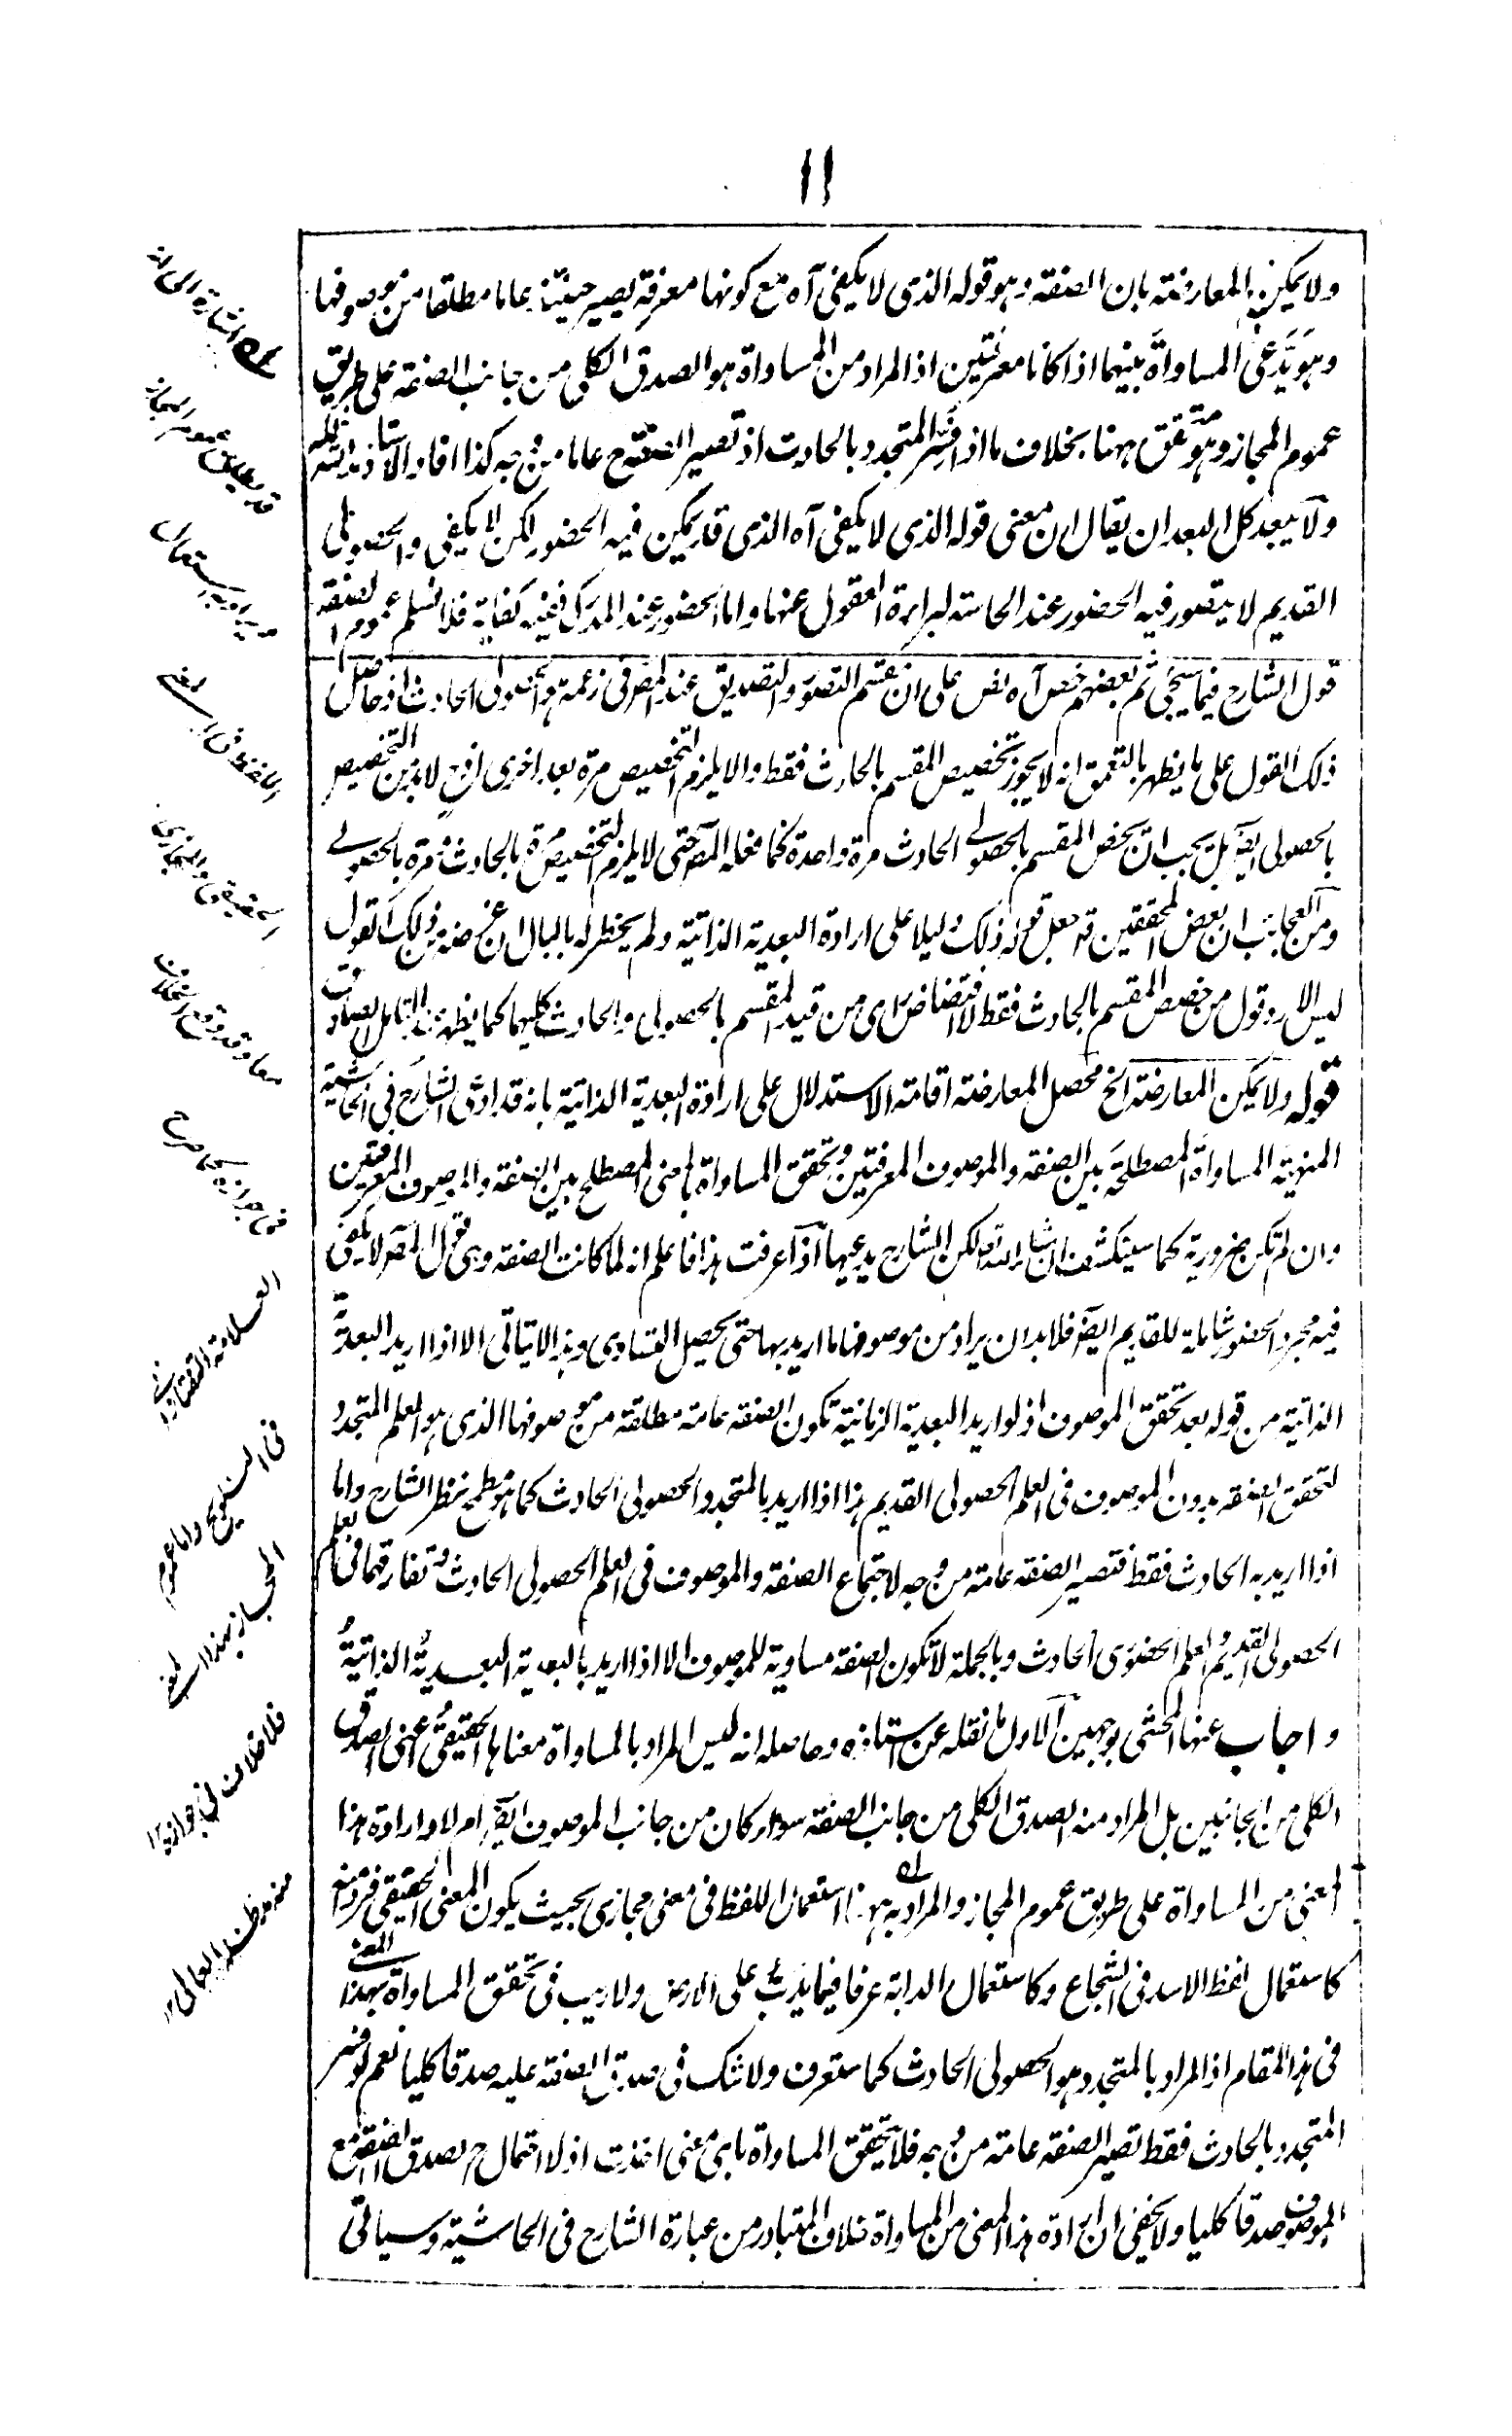 ۱۱
ولا يمكن المعارضة بان الصفة وهو قوله الذى لا يكفى آه مع كونها معرفة يصير حينئذ عاما مطلقا من موصوفها
وهو يدعى المساواة بينهما اذا كانا معرفتين اذ المراد من المساواة هو الصدق الكلى من جانب الصفة على طريق
عموم المجاز وهو متحقق ههنا بخلاف ما اذا فسر المتجدد بالحادث اذ تصير الصفة ح عاما من وجه كذا افاد الاستاذ مد ظله
ولا يبعد كل البعد ان يقال ان معنى قوله الذى لا يكفى آه الذى قد يمكن فيه الحضور لكن لا يكفى والحصولى
القديم لا يتصور فيه الحضور عند الحاسة لبراءة العقول عنها واما الحضور عند المدرك ففيه كفاية فلا نسلم عموم الصفة
قول الشارح فيما سيجئ ثم بعضهم خص آه نص على ان مقسم التصور والتصديق عند المص فى زعمه هو الحصولى الحادث اذ حاصل
ذلك القول على ما يظهر بالتعمق انه لا يجوز تخصيص المقسم بالحادث فقط والا يلزم التخصيص مرة بعد اخرى اذ ح لا بد من التخصيص
بالحصولى ايضا بل يجب ان يخص المقسم بالحصولى الحادث مرة واحدة كما فعله المص حتى لا يلزم التخصيص مرة بالحادث ومرة بالحصولى
ومن العجائب ان بعض المحققين قد جعل قوله ذلك دليلا على ارادة البعدية الذاتية ولم يخطر له بالبال ان غرضه من ذلك القول
ليس الا رد قول من خصص المقسم بالحادث فقط لا اقتضاض راى من قيد المقسم بالحصولى والحادث كليهما كما يظهر من التامل الصادق
قوله ولا يمكن المعارضة الخ محصل المعارضة اقامة الاستدلال على ارادة البعدية الذاتية بانه قد ادعى الشارح فى الحاشية
المنهية المساواة المصطلحة بين الصفة والموصوف المعرفتين وتحقق المساواة بالمعنى المصطلح بين الصفة والموصوف المعرفتين
وان لم تكن ضرورية كما سينكشف ان شاء الله تعالى لكن الشارح يدعيها اذا عرفت هذا فاعلم انه لما كانت الصفة وهى قول المص لا يكفى
فيه مجرد الحضور شاملة للقديم ايضا فلا بد ان يراد من موصوفها ما اريد بها حتى يحصل التساوى وهذا لا يتاتى الا اذا اريد البعدية
الذاتية من قوله بعد تحقق الموصوف اذ لو اريد البعدية الزمانية تكون الصفة عامة مطلقة من موصوفها الذى هو العلم المتجدد
لتحقق الصفة بدون الموصوف فى العلم الحصولى القديم هذا اذا اريد بالمتجدد الحصولى الحادث كما هو مطمح نظر الشارح واما
اذا اريد به الحادث فقط فتصير الصفة عامة من وجه لاجتماع الصفة والموصوف فى العلم الحصولى الحادث وتفارقهما فى العلم
الحصولى القديم والعلم الحضورى الحادث وبالجملة لا تكون الصفة مساوية للموصوف الا اذا اريد بالبعدية البعدية الذاتية
واجاب عنها المحشى بوجهين الاول ما نقله عن استاذه وحاصله انه ليس المراد بالمساواة معناها الحقيقى اعنى الصدق
الكلى من الجانبين بل المراد منه الصدق الكلى من جانب الصفة سواء كان من جانب الموصوف ايضا ام لا وارادة هذا
المعنى من المساواة على طريق عموم المجاز والمراد به ههنا استعمال اللفظ فى معنى مجازى بحيث يكون المعنى الحقيقى فردا منه
كاستعمال لفظ الاسد فى الشجاع وكاستعمال الدابة عرفا فيما يدب على الارض ولا ريب فى تحقق المساواة بهذا المعنى
فى هذا المقام اذ المراد بالمتجدد هو الحصولى الحادث كما ستعرف ولا شك فى صدق الصفة عليه صدقا كليا نعم لو فسر
المتجدد بالحادث فقط تصير الصفة عامة من وجه فلا يتحقق المساواة باى معنى اخذت اذ لا احتمال ح لصدق الصفة مع
الموصوف صدقا كليا ولا يخفى ان ارادة هذا المعنى من المساواة خلاف المتبادر من عبارة الشارح فى الحاشية وسياتى
له اشارة الى انه
قد يطلق عموم المجاز
ويراد به استعمال
اللفظ فى المعنى
الحقيقى والمجازى
معا وقد وقع الخلاف
فى جوازه كما صرح
العلامة التفتازانى
فى التلويح واما عموم
المجاز بهذا المعنى
فلا خلاف فى جوازه ۱۲
منه مد ظله العالى ۱۲